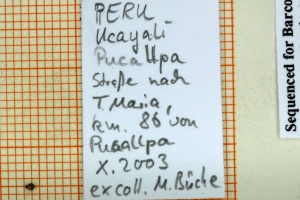 PERU
Ucayali
Pucallpa
Straße nach
T. Maria,
km. 86, von
Pucallpa
X. 2003
ex coll. M. Büche
Sequenced for Barco